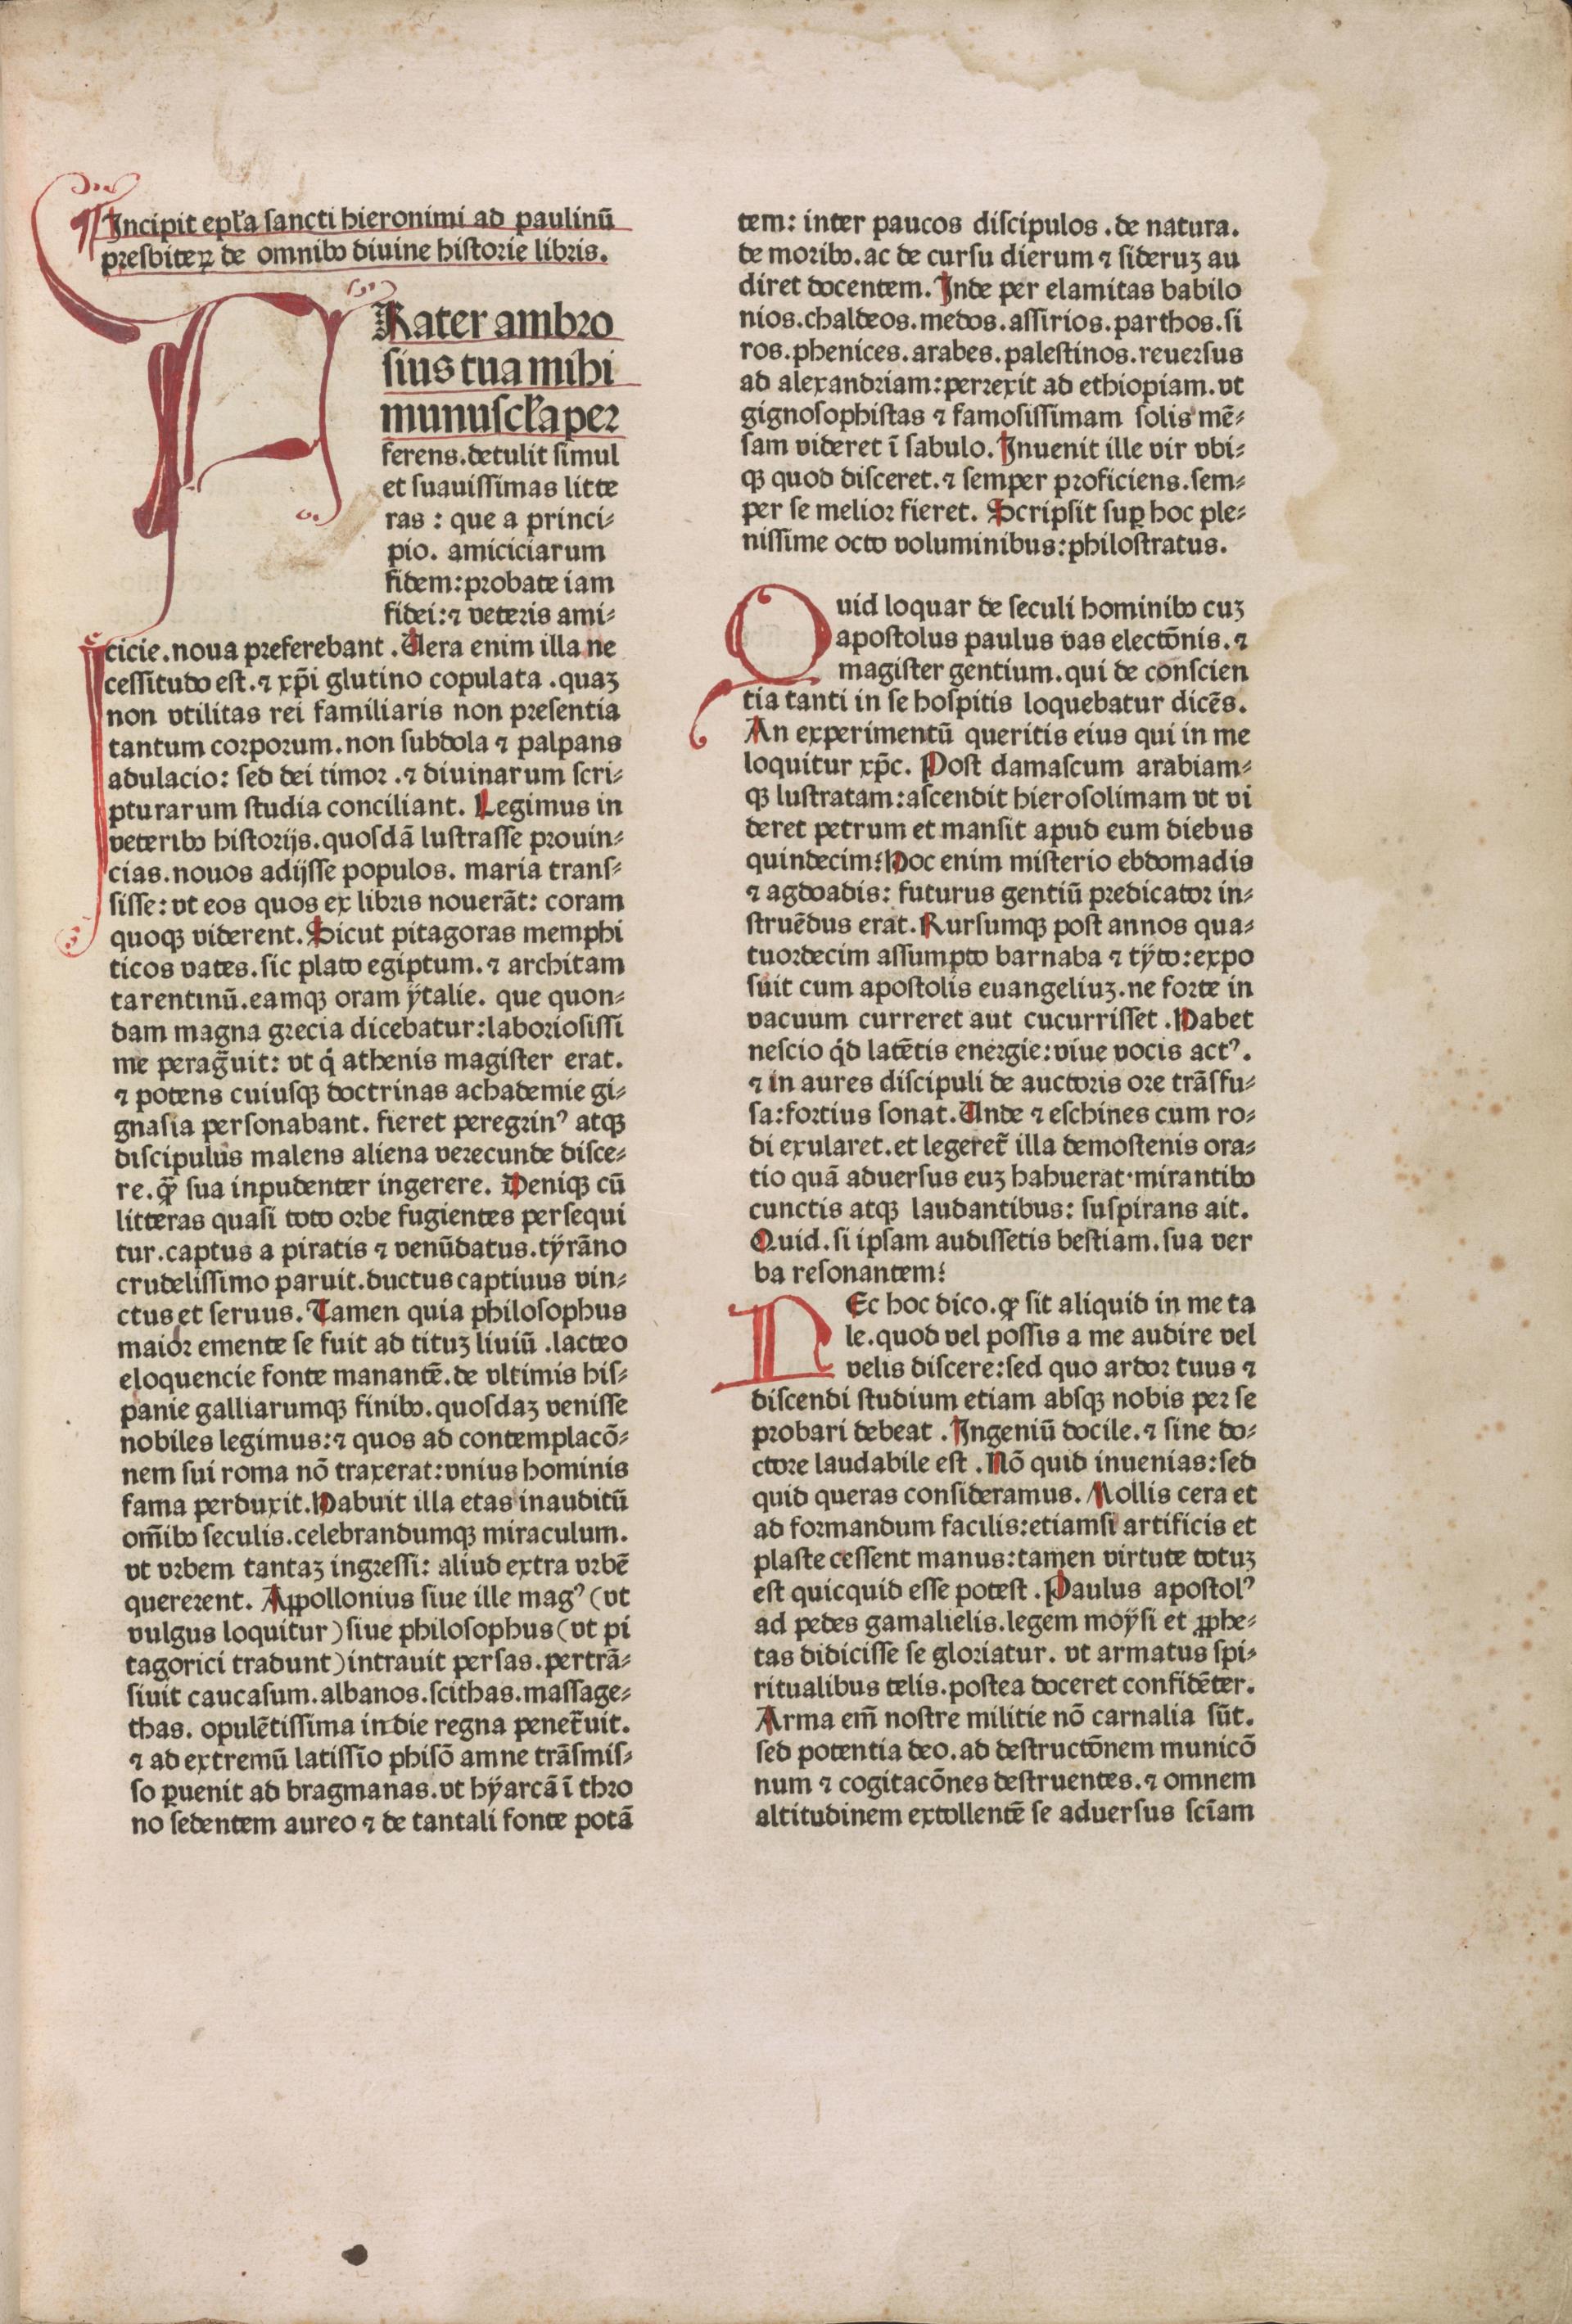 Incipit epl̄a sancti hieronimi ad paulinū
presbiteꝝ de omnibꝰ diuine historie libris.
FRater ambro
sius tua mihi
munuscl̄a per
ferens.detulit simul
et suauissimas litte
ras : que a princi⸗
pio. amiciciarum
fidem:probate iam
fidei:⁊ veteris ami⸗
cicie.noua preferebant .Uera enim illa ne
cessitudo est.⁊ xp̄i glutino copulata .quaꝫ
non vtilitas rei familiaris non presentia
tantum corporum.non subdola ⁊ palpans
adulacio: sed dei timor .⁊ diuinarum scri⸗
pturarum studia conciliant. Legimus in
veteribꝰ historijs.quosdā lustrasse prouin⸗
cias.nouos adijsse populos. maria trans⸗
sisse: vt eos quos ex libris nouerāt: coram
quoqꝫ viderent.Sicut pitagoras memphi
ticos vates.sic plato egiptum.⁊ architam
tarentinū.eamqꝫ oram ÿtalie. que quon⸗
dam magna grecia dicebatur:laboriosissi
me perag̃uit: vt qͥ athenis magister erat.
⁊ potens cuiusqꝫ doctrinas achademie gi⸗
gnasia personabant. fieret peregrinꝰ atqꝫ
discipulus malens aliena verecunde disce⸗
re.qȝ̄ sua inpudenter ingerere. Deniqꝫ cū
litteras quasi toto orbe fugientes persequi
tur.captus a piratis ⁊ venūdatus.tÿrāno
crudelissimo paruit.ductus captiuus vin⸗
ctus et seruus. Tamen quia philosophus
maior emente se fuit ad tituꝫ liuiū .lacteo
eloquencie fonte manantē.de vltimis his⸗
panie galliarumqꝫ finibꝰ.quosdaꝫ venisse
nobiles legimus:⁊ quos ad contemplacō⸗
nem sui roma nō traxerat:vnius hominis
fama perduxit.Habuit illa etas inauditū
om̄ibꝰ seculis.celebrandumqꝫ miraculum.
vt vrbem tantaꝫ ingressi: aliud extra vrbē
quererent. Appollonius siue ille magꝰ (vt
vulgus loquitur)siue philosophus(vt pi
tagorici tradunt)intrauit persas.pertrā⸗
siuit caucasum.albanos.scithas.massage⸗
thas. opulētissima indie regna penet̃uit.
⁊ ad extremū latissīo phisō amne trāsmis⸗
so ꝑuenit ad bragmanas.vt hÿarcā ī thro
no sedentem aureo ⁊ de tantali fonte potā
tem: inter paucos discipulos .de natura.
de moribꝰ.ac de cursu dierum ⁊ sideruꝫ au
diret docentem.Inde per elamitas babilo
nios.chaldeos.medos.assirios.parthos.si
ros.phenices.arabes.palestinos.reuersus
ad alexandriam:perrexit ad ethiopiam.vt
gignosophistas ⁊ famosissimam solis mē⸗
sam videret ī sabulo.Inuenit ille vir vbi⸗
qꝫ quod disceret.⁊ semper proficiens.sem⸗
per se melior fieret. Scripsit suꝑ hoc ple⸗
nissime octo voluminibus:philostratus.
Quid loquar de seculi hominibꝰ cuꝫ
apostolus paulus vas electōnis.⁊
magister gentium.qui de conscien
tia tanti in se hospitis loquebatur dicēs.
An experimentū queritis eius qui in me
loquitur xp̄c. Post damascum arabiam⸗
qꝫ lustratam:ascendit hierosolimam vt vi
deret petrum et mansit apud eum diebus
quindecim:Hoc enim misterio ebdomadis
⁊ agdoadis: futurus gentiū predicator in⸗
struēdus erat.Rursumqꝫ post annos qua⸗
tuordecim assumpto barnaba ⁊ tÿto:expo
suit cum apostolis euangeliuꝫ.ne forte in
vacuum curreret aut cucurrisset .Habet
nescio qͥd latētis energie:viue vocis actꝰ.
⁊ in aures discipuli de auctoris ore trāsfu⸗
sa:fortius sonat.Unde ⁊ eschines cum ro⸗
di exularet.et legeret̃ illa demostenis ora⸗
tio quā aduersus euꝫ hahuerat·mirantibꝰ
cunctis atqꝫ laudantibus: suspirans ait.
Quid.si ipsam audissetis bestiam.sua ver
ba resonantem:
NEc hoc dico.qȝ sit aliquid in me ta
le.quod vel possis a me audire vel
velis discere:sed quo ardor tuus ⁊
discendi studium etiam absqꝫ nobis per se
probari debeat .Ingeniū docile.⁊ sine do⸗
ctore laudabile est .Nō quid inuenias:sed
quid queras consideramus. Mollis cera et
ad formandum facilis:etiamsi artificis et
plaste cessent manus:tamen virtute totuꝫ
est quicquid esse potest .Paulus apostolꝰ
ad pedes gamalielis.legem moÿsi et ꝓphe⸗
tas didicisse se gloriatur. vt armatus spi⸗
ritualibus telis.postea doceret confidēter.
Arma em̄ nostre militie nō carnalia sūt.
sed potentia deo.ad destructōnem municō
num ⁊ cogitacōnes destruentes.⁊ omnem
altitudinem extollentē se aduersus scīam